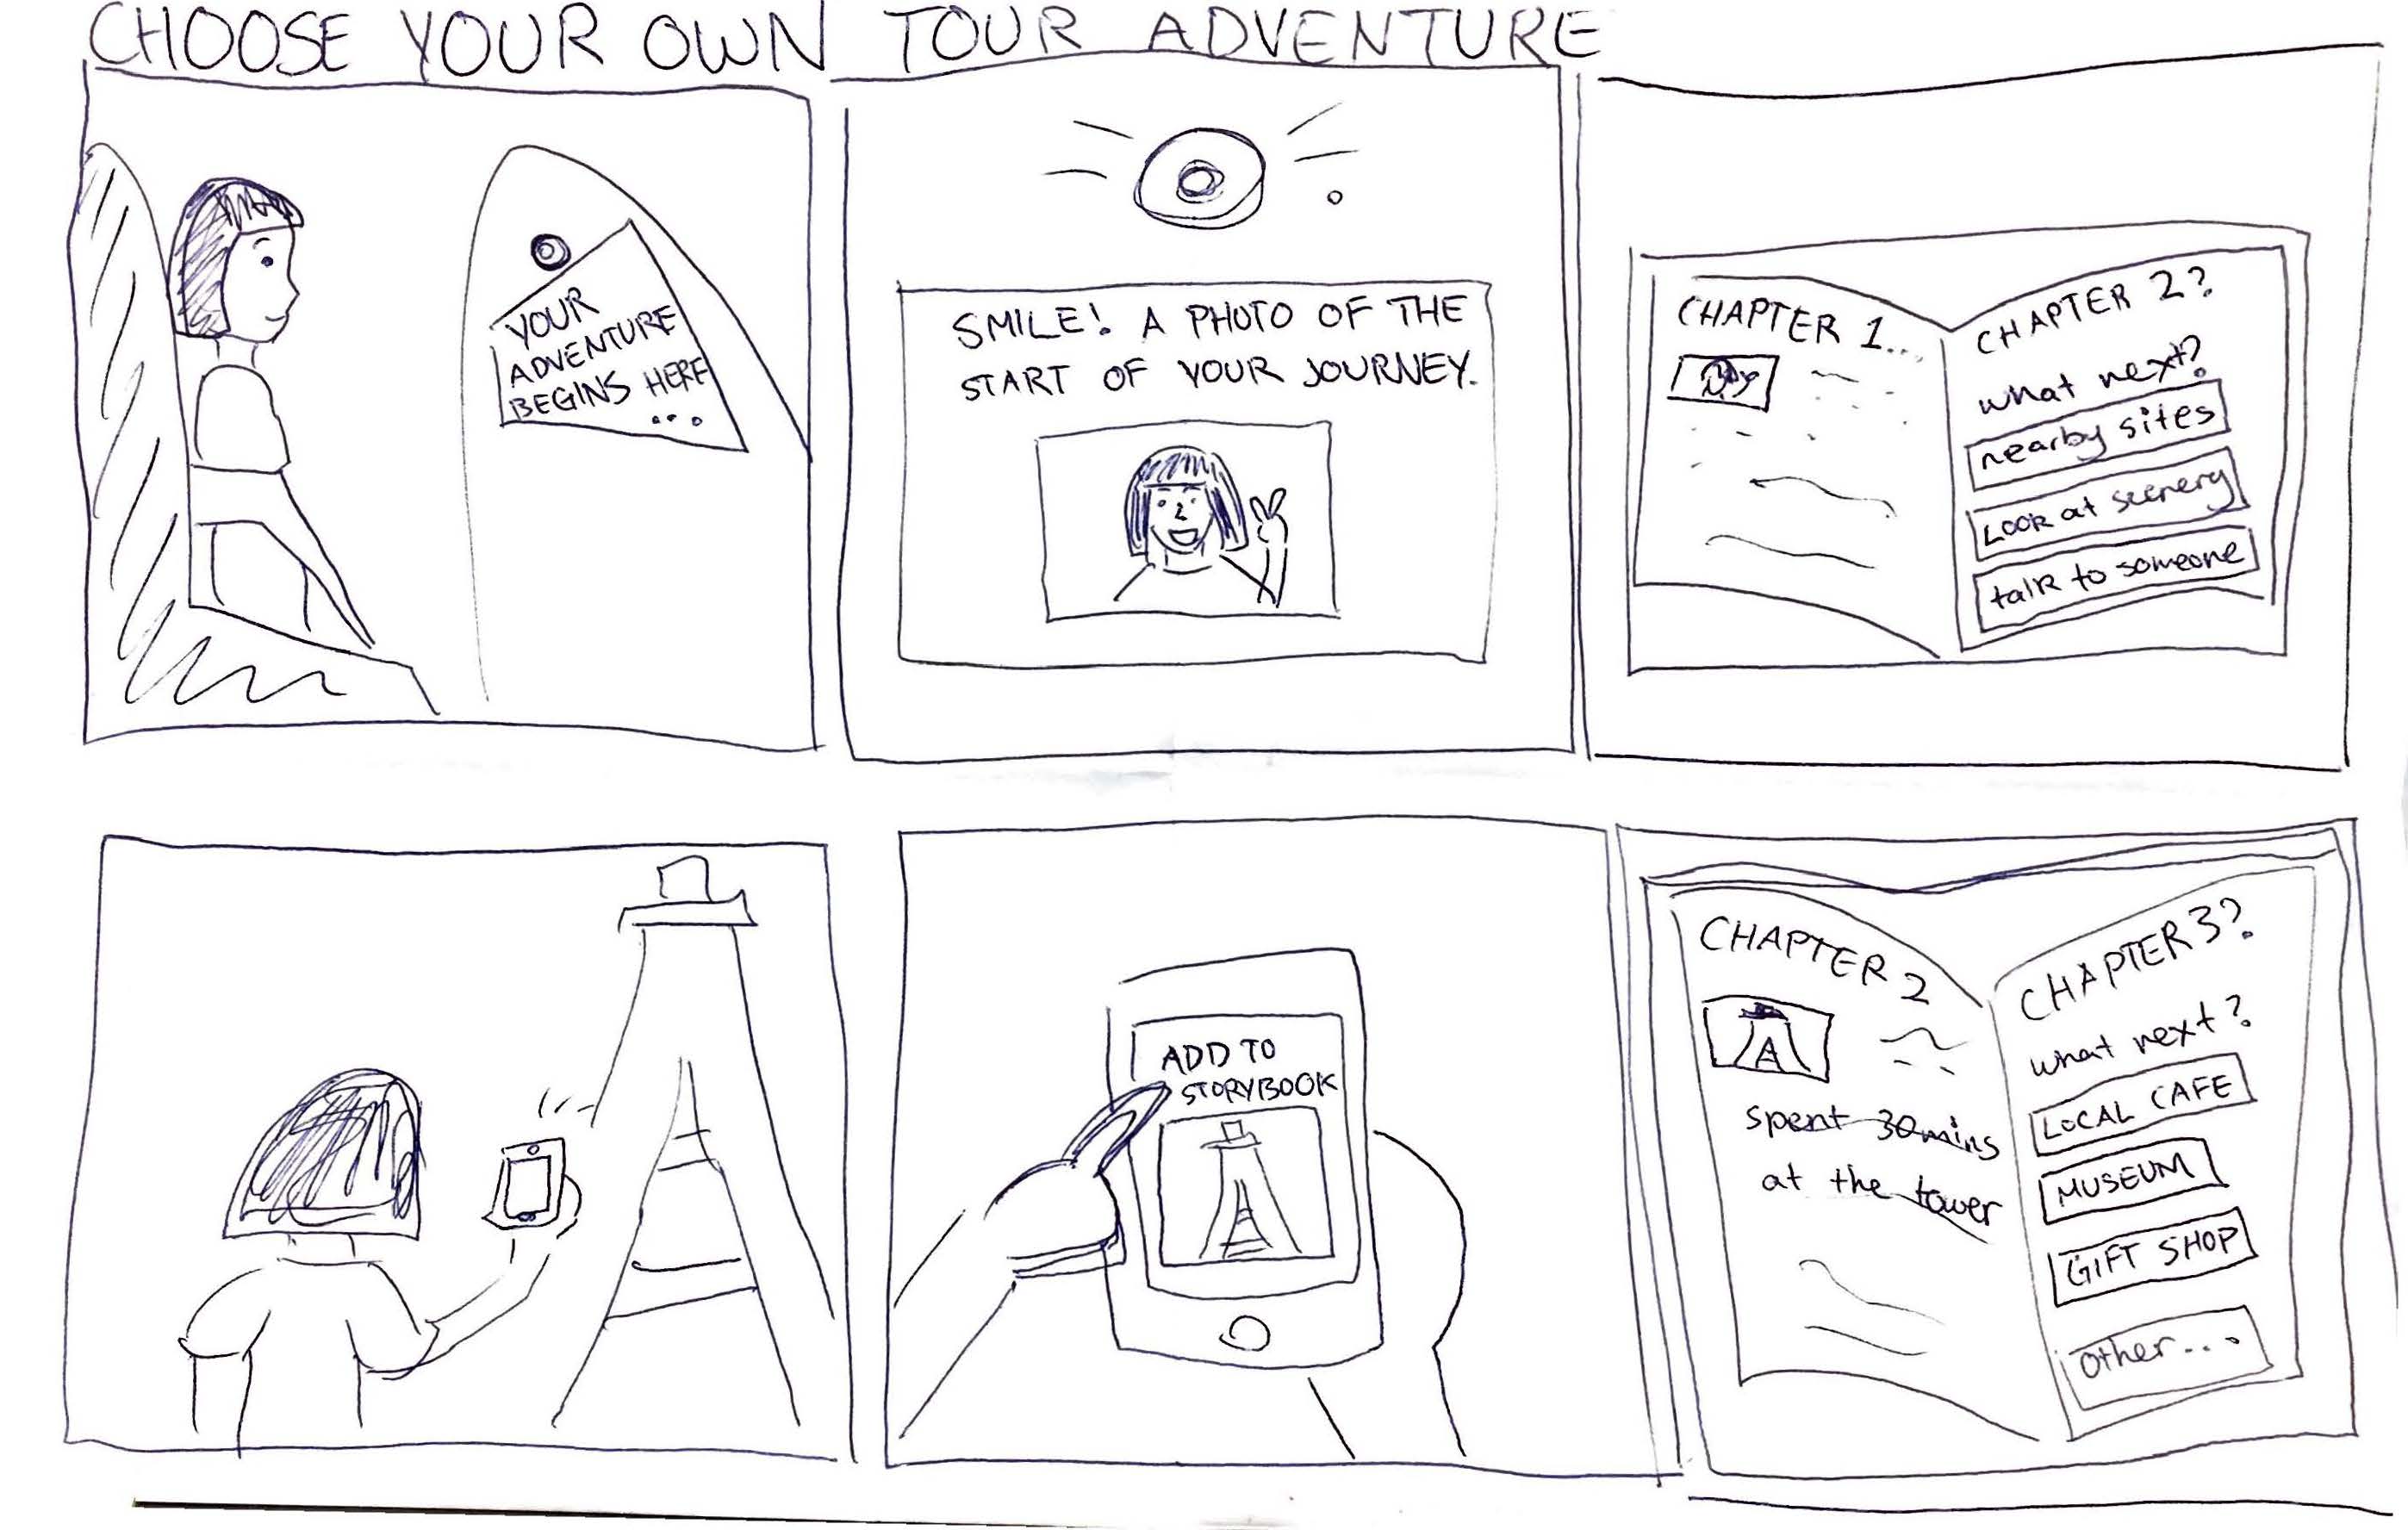 CHOOSE YOUR OWN TOUR ADVENTURE
YOUR
ADVENTURE
BEGINS HERE
...
SMILE! A PHOTO OF THE
START OF YOUR JOURNEY.
CHAPTER 1...
CHAPTER 2?
what next?
nearby sites
LOOK at scenery
talk to someone
ADD TO
STORYBOOK
CHAPTER 2
spent 30 mins
at the tower
CHAPTER 3?
what next?
LOCAL CAFE
MUSEUM
GIFT SHOP
other....